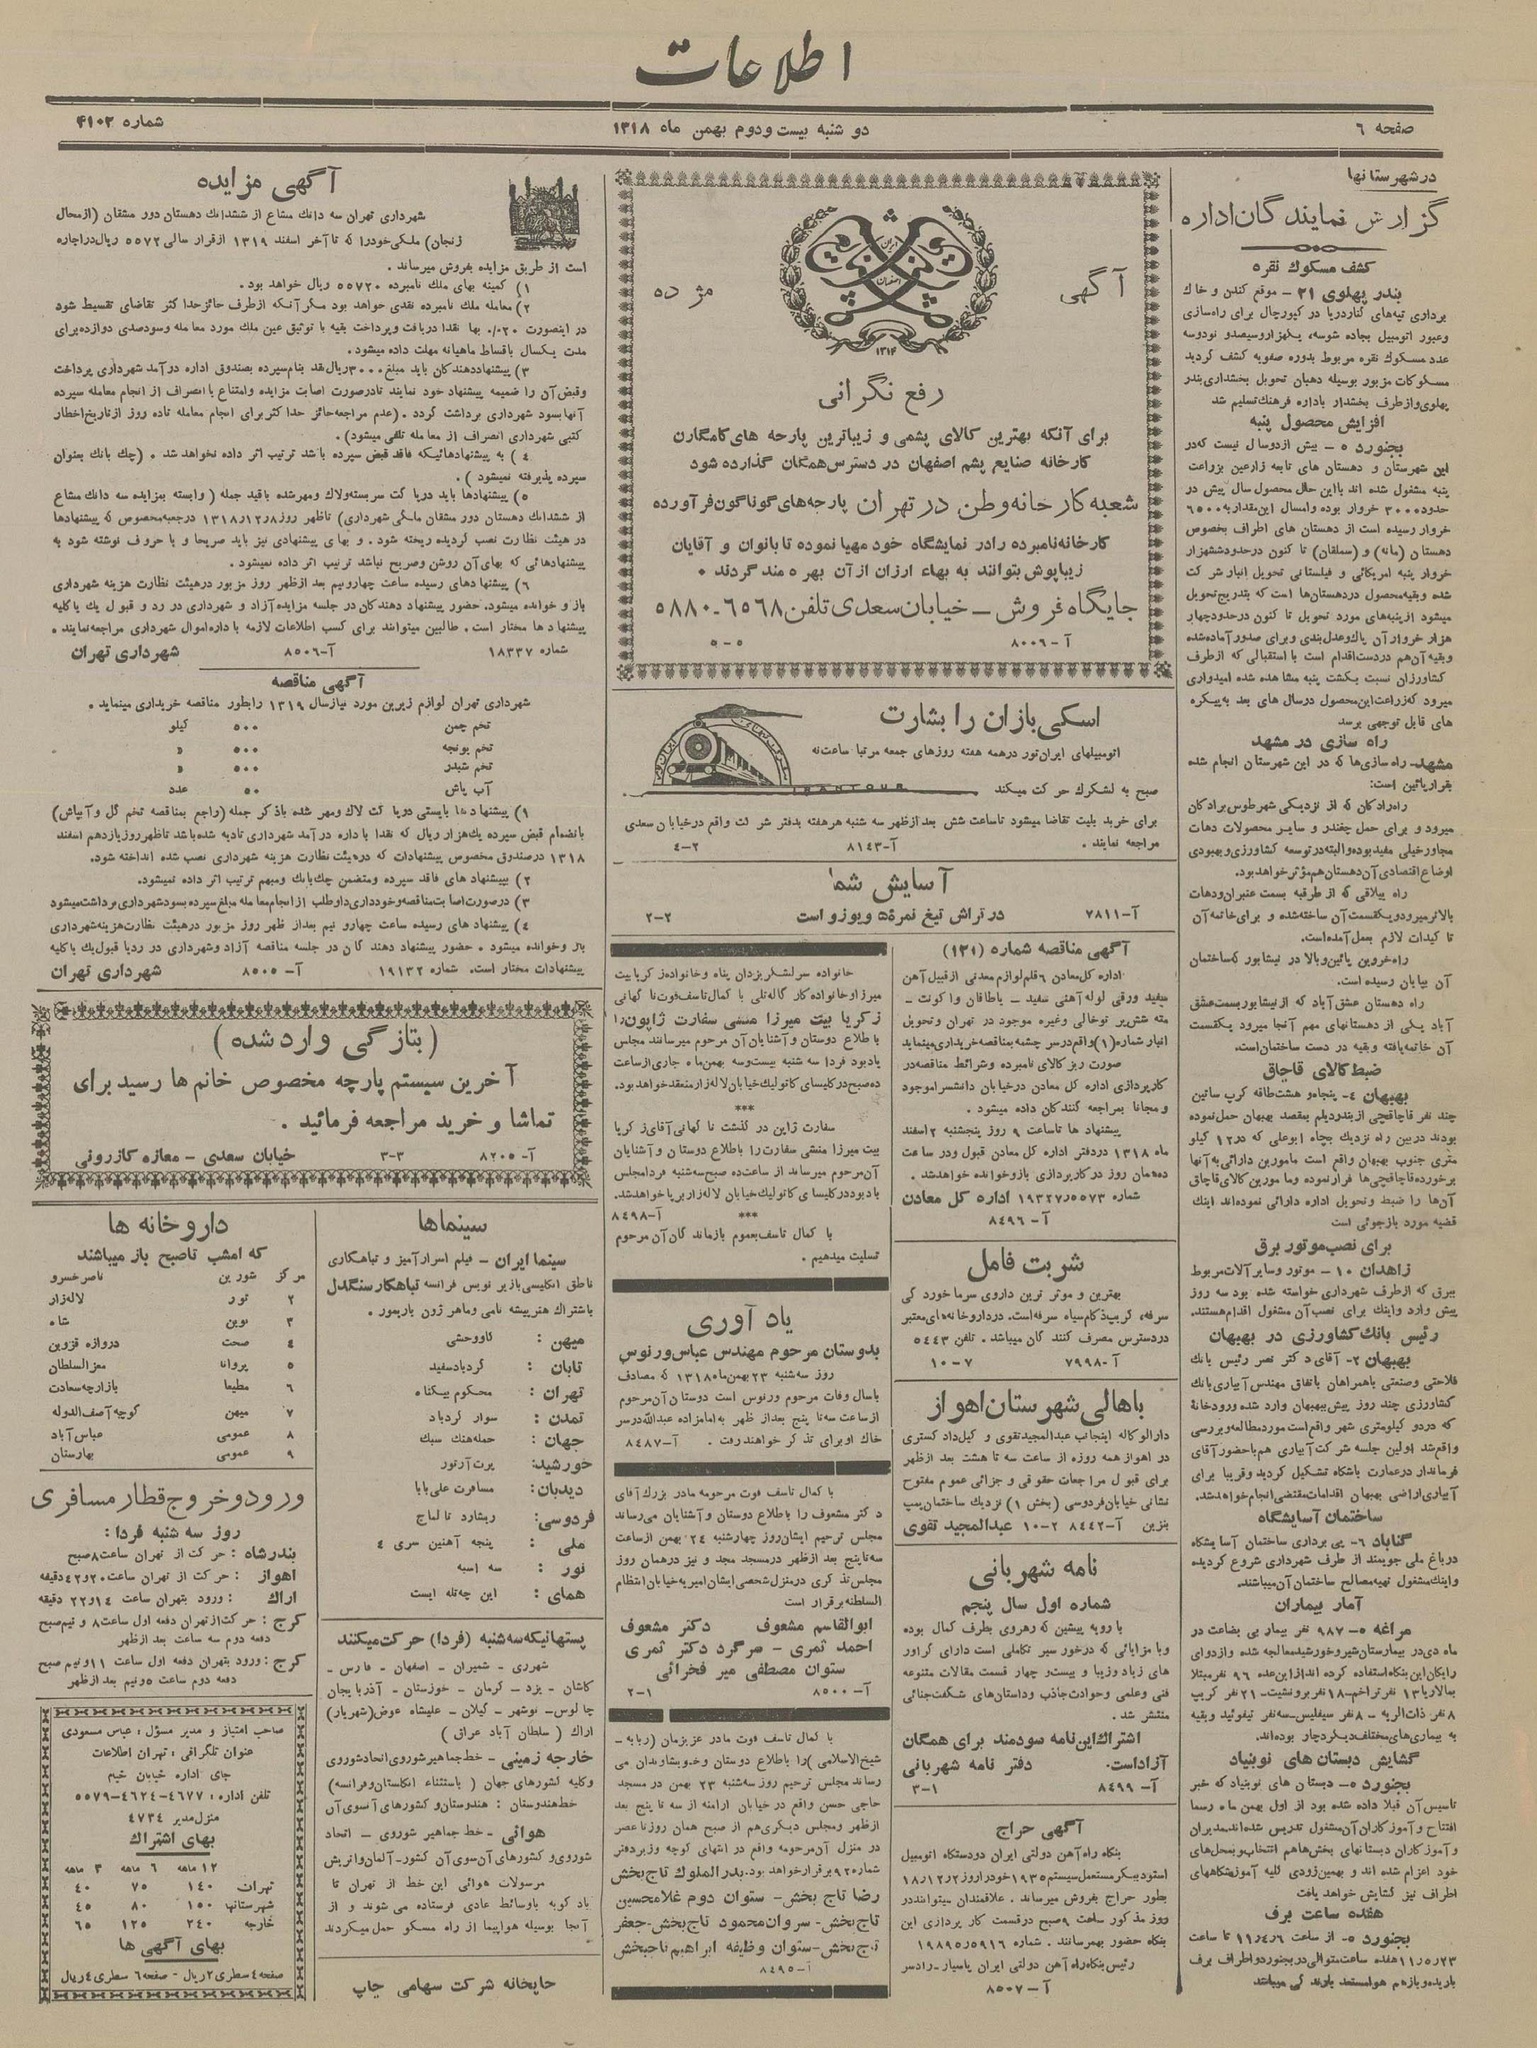 اطلاعات
صفحه ۶
دوشنبه بیست و دوم بهمن ماه ۱۳۱۸
شماره ۴۱۰۲
در شهرستانها
گزارش نمایندگان اداره
کشف مسکوک نقره
بندر پهلوی ۲۱ - موقع کندن و خاک
برداری تپه‌های کنار دریا در کپورچال برای راه‌سازی
وعبور اتومبیل بجاده شوسه، یکهزار وسیصدو نودوسه
عدد مسکوک نقره مربوط بدوره صفویه کشف گردید
مسکوکات مزبور بوسیله دهبان تحویل بخشداری بندر
پهلوی وازطرف بخشدار باداره فرهنگ تسلیم شد
افزایش محصول پنبه
بجنورد ۵ - بیش ازدوسال نیست که در
این شهرستان و دهستان های تابعه زارعین بزراعت
پنبه مشغول شده اند بااین حال محصول سال پیش در
حدود ۳۰۰۰ خروار بوده وامسال این مقدار به ۶۵۰۰
خروار رسیده است از دهستان های اطراف بخصوص
دهستان (مانه) و (سملقان) تا کنون در حدود شهزار
خروار پنبه امریکائی و فیلستانی تحویل انبار شرکت
شده وبقیه محصول دردهستان‌ها است که بتدریج تحویل
میشود ازپنبه‌های مورد تحویل تا کنون در حدود چهار
هزار خروار آن پاک وعدل بندی و برای صدور آماده شده
وبقیه آن هم دردست اقدام است با استقبالی که ازطرف
کشاورزان نسبت بکشت پنبه مشاهده شده امیدواری
میرود که زراعت این محصول درسال های بعد به پیکره
های قابل توجهی برسد
راه سازی در مشهد
مشهد - راه سازی‌ها که در این شهرستان انجام شده
بقرار پائین است:
راه رادکان که از نزدیکی شهر طوس برادکان
میرود و برای حمل چغندر و سایر محصولات دهات
مجاور خیلی مفید بوده والبته در توسعه کشاورزی و بهبودی
اوضاع اقتصادی آن دهستان هم مؤثر خواهد بود.
راه ییلاقی که از طرقبه بسمت عنبران ودهات
بالاتر میرود و یکقسمت آن ساخته شده و برای خاتمه آن
تاکیدات لازم بعمل آمده است.
راه خروین پائین وبالا در نیشابور که ساختمان
آن بپایان رسیده است.
راه دهستان عشق آباد که از نیشابور بسمت عشق
آباد یکی از دهستانهای مهم آنجا میرود یکقسمت
آن خاتمه یافته وبقیه در دست ساختمان است.
ضبط کالای قاچاق
بهبهان ۴ - پنجاه و هشت طاقه کرپ ساتین
چند نفر قاچاقچی از بندردیلم بمقصد بهبهان حمل نموده
بودند دربین راه نزدیک چاه ابوعلی که در ۱۲ کیلو
متری جنوب بهبهان واقع است مامورین دارائی به آنها
برخورده قاچاقچی‌ها فرار نموده وما مورین کالای قاچاق
آن‌ها را ضبط وتحویل اداره دارائی نموده‌اند اینک
قضیه مورد بازجوئی است
برای نصب موتور برق
زاهدان ۱۰ - موتور وسایر آلات مربوط
ببرق که ازطرف شهرداری خواسته شده بود سه روز
پیش وارد واینک برای نصب آن مشغول اقدام هستند.
رئیس بانک کشاورزی در بهبهان
بهبهان ۲ - آقای دکتر نصر رئیس بانک
فلاحتی وصنعتی باهمراهان باتفاق مهندس آبیاری بانک
کشاورزی چند روز پیش ببهبهان وارد شده ورودخانه
که دردو کیلومتری شهر واقع است مورد مطالعه وبررسی
واقع شد اولین جلسه شرکت آبیاری هم باحضور آقای
فرماندار درعمارت باشگاه تشکیل گردید وقریبا برای
آبیاری اراضی بهبهان اقدامات مقتضی انجام خواهد شد.
ساختمان آسایشگاه
گناباد ۶ - پی برداری ساختمان آسایشگاه
درباغ ملی جویمند از طرف شهرداری شروع گردیده
واینک مشغول تهیه مصالح ساختمان آن میباشند.
آمار بیماران
مراغه ۵ - ۹۸۷ نفر بیمار بی بضاعت در
ماه دی در بیمارستان شیر وخورشید معالجه شده وازدوای
رایگان این بنگاه استفاده کرده اند از این عده ۹۶ نفر مبتلا
بمالاریا ۱۳ نفر تراخم - ۱۸ نفر برونشیت - ۲۱ نفر کریپ
۸ نفر ذات الریه - ۸ نفر سیفلیس - سه نفر تیفوئید وبقیه
به بیماری‌های مختلف دیگر دچار بوده‌اند.
گشایش دبستان های نوبنیاد
بجنورد ۵ - دبستان های نوبنیاد که خبر
تاسیس آن قبلا داده شده بود از اول بهمن ماه رسما
افتتاح و آموزگاران آن مشغول تدریس شده‌اند. مدیران
و آموزگاران دبستانهای بخش‌ها هم انتخاب و بمحل‌های
خود اعزام شده اند و بهمین زودی کلیه آموزشگاههای
اطراف نیز گشایش خواهد یافت
هفده ساعت برف
بجنورد ۵ - از ساعت ۱۱/۴/۶ تا ساعت
۱۱/۵/۲۳ هفده ساعت متوالی دربجنورد واطراف برف
باریده وبازهم هوا مستعد بارندگی میباشد
آگهی
مژده
۱۳۱۴
رفع نگرانی
برای آنکه بهترین کالای پشمی و زیباترین پارچه های کامگارن
کارخانه صنایع پشم اصفهان در دسترس همگان گذارده شود
شعبه کارخانه وطن در تهران پارچه‌های گوناگون فرآورده
کارخانه نامبرده را در نمایشگاه خود مهیا نموده تا بانوان و آقایان
زیباپوش بتوانند به بهاء ارزان از آن بهره مند گردند •
جایگاه فروش - خیابان سعدی تلفن ۶۵۶۸ - ۵۸۸۰
آ - ۸۰۰۶
۵ - ۵
اسکی بازان را بشارت
اتومبیلهای ایران تور درهمه هفته روزهای جمعه مرتبا ساعت نه
صبح به لشکرک حرکت میکند
IRANTOUR
برای خرید بلیت تقاضا میشود تاساعت شش بعد ازظهر سه شنبه هر هفته بدفتر شرکت واقع در خیابان سعدی
مراجعه نمایند.
آ - ۸۱۴۳
۲ - ۴
آسایش شما
آ - ۷۸۱۱
در تراش تیغ نمره ۵ ویوزو است
۲ - ۲
آگهی مناقصه شماره (۱۲۱)
اداره کل معادن ۶ قلم لوازم معدنی از قبیل آهن
سفید ورقی لوله آهنی سفید - یاطاقان واگوت -
مته شش پر توخالی وغیره موجود در تهران وتحویل
انبار شماره (۱) واقع درسر چشمه بمناقصه خریداری مینماید
صورت ریز کالای نامبرده وشرائط مناقصه در
کارپردازی اداره کل معادن درخیابان دانشسرا موجود
و مجانا بمراجعه کنندگان داده میشود.
پیشنهاد ها تاساعت ۹ روز پنجشنبه ۲ اسفند
ماه ۱۳۱۸ دردفتر اداره کل معادن قبول ودر ساعت
ده همان روز در کارپردازی باز وخوانده خواهد شد.
شماره ۱۹۳۲۷/۵۵۷۳ اداره کل معادن
آ - ۸۴۹۶
شربت فامل
بهترین و موثر ترین داروی سرما خوردگی
سرفه، گریپ ذکام سیاه سرفه است. درداروخانه‌های معتبر
دردسترس مصرف کنندگان میباشد. تلفن ۵۴۴۳
آ - ۷۹۹۸
۷ - ۱۰
باهالی شهرستان اهواز
دارالوکاله اینجانب عبدالمجید تقوی وکیل دادگستری
در اهواز همه روزه از ساعت سه تا هشت بعد ازظهر
برای قبول مراجعات حقوقی و جزائی عموم مفتوح
نشانی خیابان فردوسی (بخش ۱) نزدیک ساختمان پمپ
بنزین آ - ۸۴۴۲ ۲ - ۱۰ عبدالمجید تقوی
نامه شهربانی
شماره اول سال پنجم
با رویه پیشین که رهروی بطرف کمال بوده
وبا مزایائی که درخور سیر تکاملی است دارای گراور
های زیاد وزیبا و بیست و چهار قسمت مقالات متنوعه
فنی وعلمی وحوادث جاذب وداستان‌های شگفت جنائی
منتشر شد.
اشتراک این نامه سودمند برای همگان
آزاد است. دفتر نامه شهربانی
آ - ۸۴۹۹
۱ - ۳
آگهی حراج
بنگاه راه آهن دولتی ایران دو دستگاه اتومبیل
استودبیکر مستعمل سیستم ۱۹۳۵ خودرا روز ۱۸/۱۲/۲
بطور حراج بفروش میرساند. علاقمندان میتوانند در
روز مذکور ساعت ۹ صبح درقسمت کار پردازی این
بنگاه حضور بهمرسانند. شماره ۱۹۸۹۵/۵۹۱۶
رئیس بنگاه راه آهن دولتی ایران پاسیار - رادسر
آ - ۸۵۰۷
خانواده سرلشگر یزدان پناه وخانواده زکریا بیت
میرزا وخانواده کارگاله تلی با کمال تاسف فوت ناگهانی
زکریا بیت میرزا منشی سفارت ژاپون را
با طلاع دوستان و آشنایان آن مرحوم میرسانند مجلس
یادبود فردا سه شنبه بیست وسه بهمن ماه جاری از ساعت
ده صبح در کلیسای کاتولیک خیابان لاله زار منعقد خواهد بود.
***
سفارت ژاپن در گذشت ناگهانی آقای زکریا
بیت میرزا منشی سفارت را باطلاع دوستان و آشنایان
آن مرحوم میرساند از ساعت ده صبح سه شنبه فردا مجلس
یادبود در کلیسای کاتولیک خیابان لاله زار برپا خواهد شد.
آ - ۸۴۹۸
***
با کمال تاسف بعموم بازماندگان آن مرحوم
تسلیت میدهیم.
یادآوری
بدوستان مرحوم مهندس عباس ورنوس
روز سه شنبه ۲۳ بهمن ماه ۱۳۱۸ که مصادف
باسال وفات مرحوم ورنوس است دوستان آن مرحوم
از ساعت سه تا پنج بعد از ظهر به امامزاده عبدالله درسر
خاک او برای تذکر خواهند رفت. آ - ۸۴۸۷
با کمال تاسف فوت مرحومه مادر بزرگ آقای
دکتر مشعوف را باطلاع دوستان و آشنایان می‌رساند
مجلس ترحیم ایشان روز چهارشنبه ۲۴ بهمن ازساعت
سه تا پنج بعد ازظهر در مسجد مجد و نیز درهمان روز
مجلس تذکری در منزل شخصی ایشان امیریه خیابان انتظام
السلطنه برقرار است
ابوالقاسم مشعوف دکتر مشعوف
احمد ثمری - سرگرد دکتر ثمری
ستوان مصطفی میر فخرائی
آ - ۸۵۰۰
۱ - ۲
با کمال تاسف فوت مادر عزیزمان (ربابه -
شیخ الاسلامی) را باطلاع دوستان وخویشاوندان می
رساند مجلس ترحیم روز سه شنبه ۲۳ بهمن در مسجد
حاجی حسن واقع در خیابان ارامنه از سه تا پنج بعد
ازظهر ومجلس دیگری هم از صبح همان روز تا عصر
در منزل آن مرحومه واقع در انتهای کوچه وزیر دفتر
شماره ۹۲ برقرار خواهد بود. بدرالملوک تاج بخش
رضا تاج بخش - ستوان دوم غلامحسین
تاج بخش - سروان محمود تاج بخش - جعفر
تاج بخش - ستوان وظیفه ابراهیم تاجبخش
آ - ۸۴۹۵
آگهی مزایده
شهرداری تهران سه دانک مشاع از ششدانک دهستان دور مشقان (از محال
زنجان) ملکی خودرا که تا آخر اسفند ۱۳۱۹ از قرار سالی ۵۵۷۲ ریال دراجاره
است از طریق مزایده بفروش میرساند.
۱) کمینه بهای ملک نامبرده ۵۵۷۲۰ ریال خواهد بود.
۲) معامله ملک نامبرده نقدی خواهد بود مگر آنکه از طرف حائز حداکثر تقاضای تقسیط شود
در اینصورت ۲۰٪ بها نقدا دریافت و پرداخت بقیه با توثیق عین ملک مورد معامله وسود صدی دوازده برای
مدت یکسال باقساط ماهیانه مهلت داده میشود.
۳) پیشنهاد دهندگان باید مبلغ ۳۰۰۰ ریال نقد بنام سپرده بصندوق اداره درآمد شهرداری پرداخت
وقبض آن را ضمیمه پیشنهاد خود نمایند تا درصورت اصابت مزایده وامتناع یا انصراف از انجام معامله سپرده
آنها بسود شهرداری برداشت گردد. (عدم مراجعه حائز حداکثر برای انجام معامله تاده روز از تاریخ اخطار
کتبی شهرداری انصراف از معامله تلقی میشود).
۴) به پیشنهادهائیکه فاقد قبض سپرده باشد ترتیب اثر داده نخواهد شد. (چک بانک بعنوان
سپرده پذیرفته نمیشود).
۵) پیشنهادها باید درپاکت سربسته ولاک ومهر شده باقید جمله (وابسته بمزایده سه دانک مشاع
از ششدانک دهستان دور مشقان ملکی شهرداری) تا ظهر روز ۱۳۱۸/۱۲/۸ در جعبه مخصوص که پیشنهادها
در هیئت نظارت نصب گردیده ریخته شود. و بهای پیشنهادی نیز باید صریحا و با حروف نوشته شود به
پیشنهادهائی که بهای آن روشن وصریح نباشد ترتیب اثر داده نمیشود.
۶) پیشنهادهای رسیده ساعت چهارونیم بعد ازظهر روز مزبور درهیئت نظارت هزینه شهرداری
باز و خوانده میشود. حضور پیشنهاد دهندگان در جلسه مزایده آزاد و شهرداری در رد و قبول یک یا کلیه
پیشنهادها مختار است. طالبین میتوانند برای کسب اطلاعات لازمه باداره اموال شهرداری مراجعه نمایند.
شماره ۱۸۳۳۷
آ - ۸۵۰۶
شهرداری تهران
آگهی مناقصه
شهرداری تهران لوازم زیرین مورد نیاز سال ۱۳۱۹ رابطور مناقصه خریداری مینماید.
تخم چمن ۵۰۰ کیلو
تخم یونجه ۵۰۰ »
تخم شبدر ۵۰۰ »
آب پاش ۵۰ عدد
۱) پیشنهادها بایستی درپاکت لاک ومهر شده باذکر جمله (راجع بمناقصه تخم گل و آبپاش)
بانضمام قبض سپرده یک هزار ریال که نقدا باداره درآمد شهرداری تادیه شده باشد تاظهر روز یازدهم اسفند
۱۳۱۸ درصندوق مخصوص پیشنهادات که درهیئت نظارت هزینه شهرداری نصب شده انداخته شود.
۲) بپیشنهاد های فاقد سپرده ومتضمن چک بانک ومبهم ترتیب اثر داده نمیشود.
۳) درصورت اصابت مناقصه وخودداری داوطلب از انجام معامله مبلغ سپرده بسود شهرداری برداشت میشود
۴) پیشنهاد های رسیده ساعت چهارو نیم بعداز ظهر روز مزبور درهیئت نظارت هزینه شهرداری
باز وخوانده میشود. حضور پیشنهاد دهندگان در جلسه مناقصه آزاد وشهرداری در ردیا قبول یک یا کلیه
پیشنهادات مختار است. شماره ۱۹۱۳۲ آ - ۸۵۰۵ شهرداری تهران
(بتازگی وارد شده)
آخرین سیستم پارچه مخصوص خانم ها رسید برای
تماشا و خرید مراجعه فرمائید.
آ - ۸۲۰۵ ۳ - ۳ خیابان سعدی - مغازه کازرونی
سینماها
سینما ایران - فیلم اسرار آمیز و تباهکاری
ناطق انگلیسی بازیر نویس فرانسه تباهکار سنگدل
باشتراک هنرپیشه نامی وماهر ژون باریمور.
میهن: گاووحشی
تابان: گردباد سفید
تهران: محکوم بیگناه
تمدن: سوار گردباد
جهان: حمله هنک سبک
خورشید: پرت آرتور
دیدبان: مسافرت علی بابا
فردوسی: ریشارد تالماج
ملی: پنجه آهنین سری ۴
نور: سه اسبه
همای: این چه تله ایست
پستهائیکه سه شنبه (فردا) حرکت میکنند
شهرری - شمیران - اصفهان - فارس -
کاشان - یزد - کرمان - خوزستان - آذربایجان
چالوس - نوشهر - گیلان - علیشاه عوض (شهریار)
اراک (سلطان آباد عراق)
خارجه زمینی - خط جماهیر شوروی اتحاد شوروی
وکلیه کشورهای جهان (باستثناء انگلستان وفرانسه)
خط هندوستان: هندوستان و کشورهای آنسوی آن
هوائی - خط جماهیر شوروی - اتحاد
شوروی و کشورهای آن سوی آن کشور - آلمان واتریش
مرسولات هوائی این خط از تهران تا
بادکوبه باوسائط عادی فرستاده می شوند و از
آنجا بوسیله هواپیما از راه مسکو حمل میگردند
چاپخانه شرکت سهامی چاپ
داروخانه ها
که امشب تاصبح باز میباشند
مرکز شورین ناصرخسرو
۲ نور لاله‌زار
۳ نوین شاه
۴ صحت دروازه قزوین
۵ پروانا معزالسلطان
۶ مطیعا بازارچه سعادت
۷ میهن کوچه آصف الدوله
۸ عمومی عباس آباد
۹ عمومی بهارستان
ورود و خروج قطار مسافری
روز سه شنبه فردا:
بندرشاه: حرکت از تهران ساعت ۸ صبح
اهواز: حرکت از تهران ساعت ۲۰ و ۴۲ دقیقه
اراک: ورود بتهران ساعت ۱۴ و ۲۲ دقیقه
کرج: حرکت از تهران دفعه اول ساعت ۸ و نیم صبح
دفعه دوم سه ساعت بعد ازظهر
کرج: ورود بتهران دفعه اول ساعت ۱۱ ونیم صبح
دفعه دوم ساعت ۵ ونیم بعد ازظهر
صاحب امتیاز و مدیر مسؤل: عباس مسعودی
عنوان تلگرافی: تهران اطلاعات
جای اداره خیابان خیام
تلفن اداره: ۴۶۷۷-۴۶۲۴-۵۵۷۹
منزل مدیر ۴۷۳۴
بهای اشتراک
۱۲ ماهه ۶ ماهه ۳ ماهه
تهران ۱۴۰ ۷۵ ۴۰
شهرستانها ۱۵۰ ۸۰ ۴۵
خارجه ۲۴۰ ۱۲۵ ۶۵
بهای آگهی ها
صفحه ۴ سطری ۲ ریال - صفحه ۶ سطری ۴ ریال